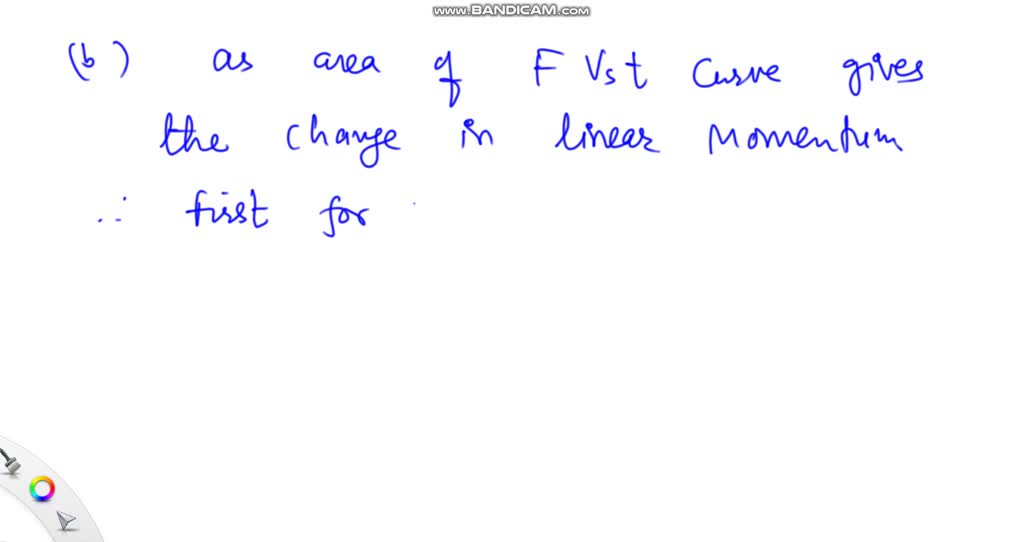 www.BANDICAM.com
(b) as area of F Vs t Curve gives
the change in linear Momentum
∴ first for